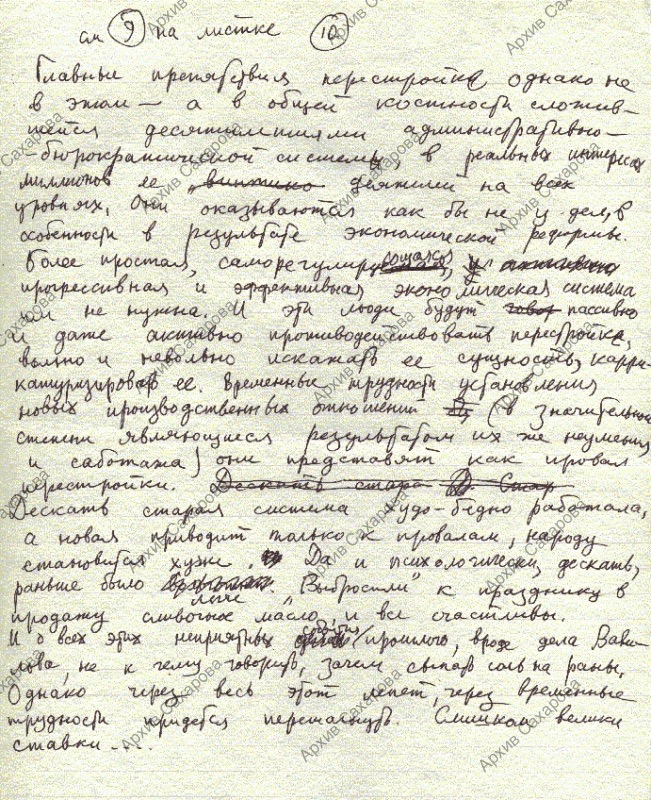 см 9 на листке 10
Главные препятствия перестройке однако не
в этом — а в общей костности сложив-
шейся десятилетиями административно-
-бюрократической системы, в реальных интересах
миллионов ее винтико деятелей на всех
уровнях. Они оказываются как бы не у дел, в
особенности в результате экономической реформы.
Более простая, саморегулирующаяся,
прогрессивная и эффективная экономическая система
им не нужна. И эти люди будут пассивно
и даже активно противодействовать перестройке,
вольно и невольно искажать ее сущность, карри-
катуризировать ее. Временные трудности установления
новых производственных отношений (в значительной
степени являющиеся результатом их же неумения
и саботажа) они представят как провал
перестройки. Дескать стара Д. Стар
Дескать старая система худо-бедно работала,
а новая приводит только к провалам, народу
становится хуже. Да и психологически, дескать,
раньше было легче. "Выбросили" к празднику в
продажу сливочное масло, и все счастливы.
И о всех этих неприятных событиях прошлого, вроде дела Вави-
лова, не к чему говорить, зачем сыпать соль на раны.
Однако через весь этот лепет, через временные
трудности придется перешагнуть. Слишком велики
ставки...
Архив Сахарова